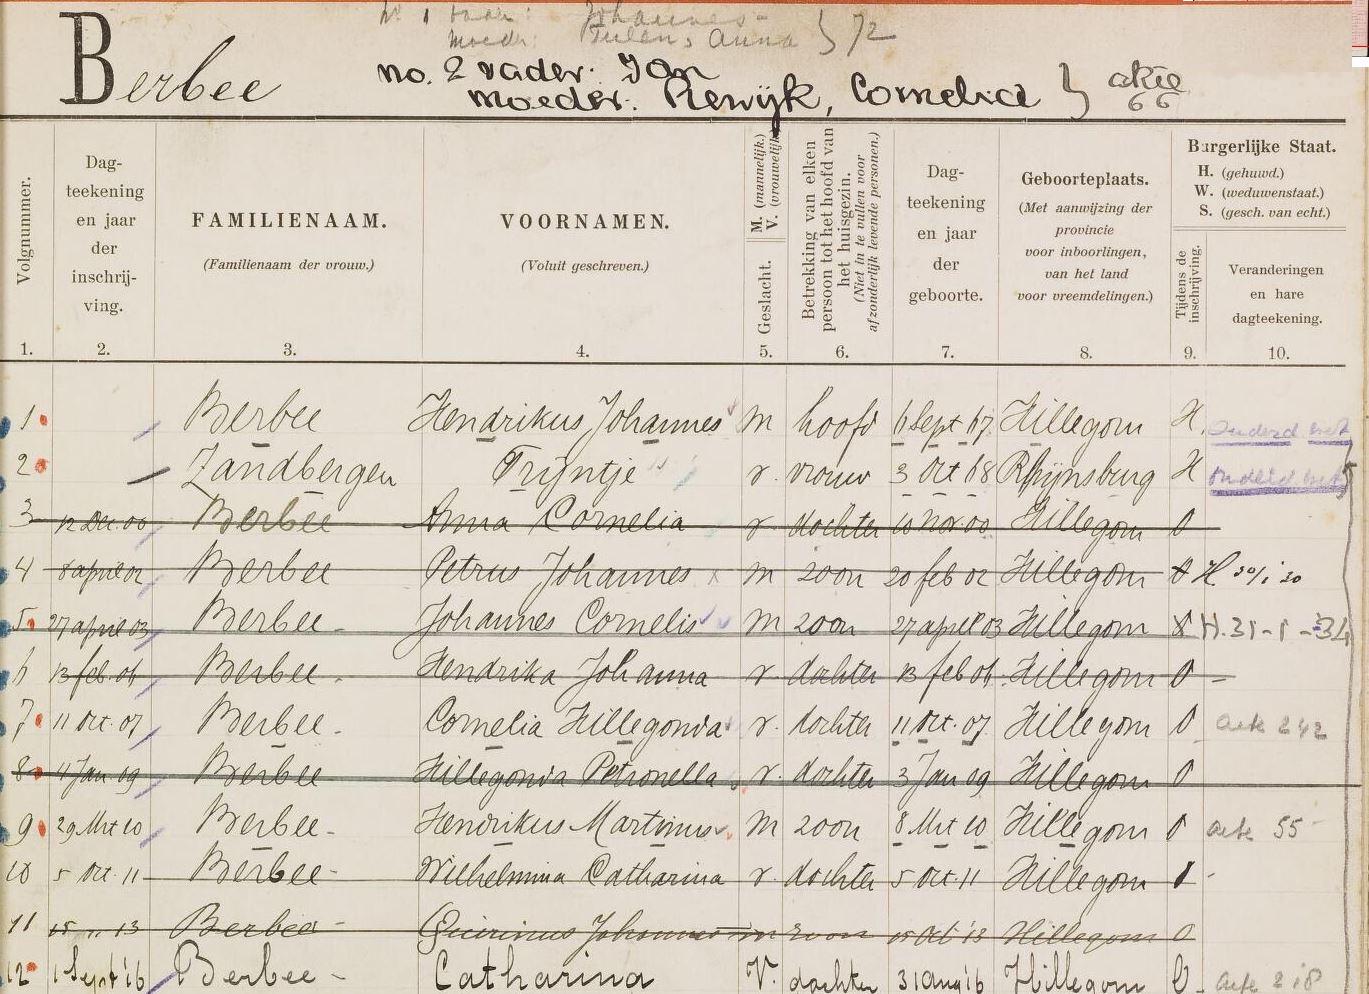 No 1 vader: Johannes
moeder: Teulens Anna } 72
Berbee
no. 2 vader: Jan
moeder: Rewijk, Cornelia } akte 66
Volgnummer.
Dag-
teekening
en jaar
der
inschrij-
ving.
FAMILIENAAM.
(Familienaam der vrouw.)
VOORNAMEN.
(Voluit geschreven.)
Geslacht. M. (mannelijk.) V. (vrouwelijk.)
Betrekking van elken
persoon tot het hoofd van
het huisgezin.
(Niet in te vullen voor
afzonderlijk levende personen.)
Dag-
teekening
en jaar
der
geboorte.
Geboorteplaats.
(Met aanwijzing der
provincie
voor inboorlingen,
van het land
voor vreemdelingen.)
Burgerlijke Staat.
H. (gehuwd.)
W. (weduwenstaat.)
S. (gesch. van echt.)
Tijdens de
inschrijving.
Veranderingen
en hare
dagteekening.
1. 2. 3. 4. 5. 6. 7. 8. 9. 10.
1 Berbee Hendrikus Johannes m hoofd 6 Sept 67 Hillegom H.
2 Zandbergen Trijntje v. vrouw 3 Oct 68 Rhijnsburg H
3 12 Dec. 00 Berbee Anna Cornelia v. dochter 10 Nov. 00 Hillegom O
4 8 april 02 Berbee Petrus Johannes m zoon 20 feb 02 Hillegom O H 30/1 30
5. 27 april 03 Berbee - Johannes Cornelis m zoon 27 april 03 Hillegom O H. 31-1-34
6 13 feb. 06 Berbee - Hendrika Johanna v. dochter 13 feb 06 Hillegom O -
7 11 Oct. 07 Berbee - Cornelia Hillegonda v. dochter 11 Oct. 07 Hillegom O akte 242
8 4 Jan 09 Berbee Hillegonda Petronella v. dochter 3 Jan 09 Hillegom O
9 29 Mrt 10 Berbee - Hendrikus Martinus m zoon 8 Mrt 10 Hillegom O akte 55
10 5 Oct. 11 Berbee - Wilhelmina Catharina v. dochter 5 Oct. 11 Hillegom O
11 15 " 13 Berbee - Quirinus Johannes m zoon 15 Oct 13 Hillegom O
12 1 Sept '16 Berbee - Catharina V. dochter 31 aug '16 Hillegom O akte 218